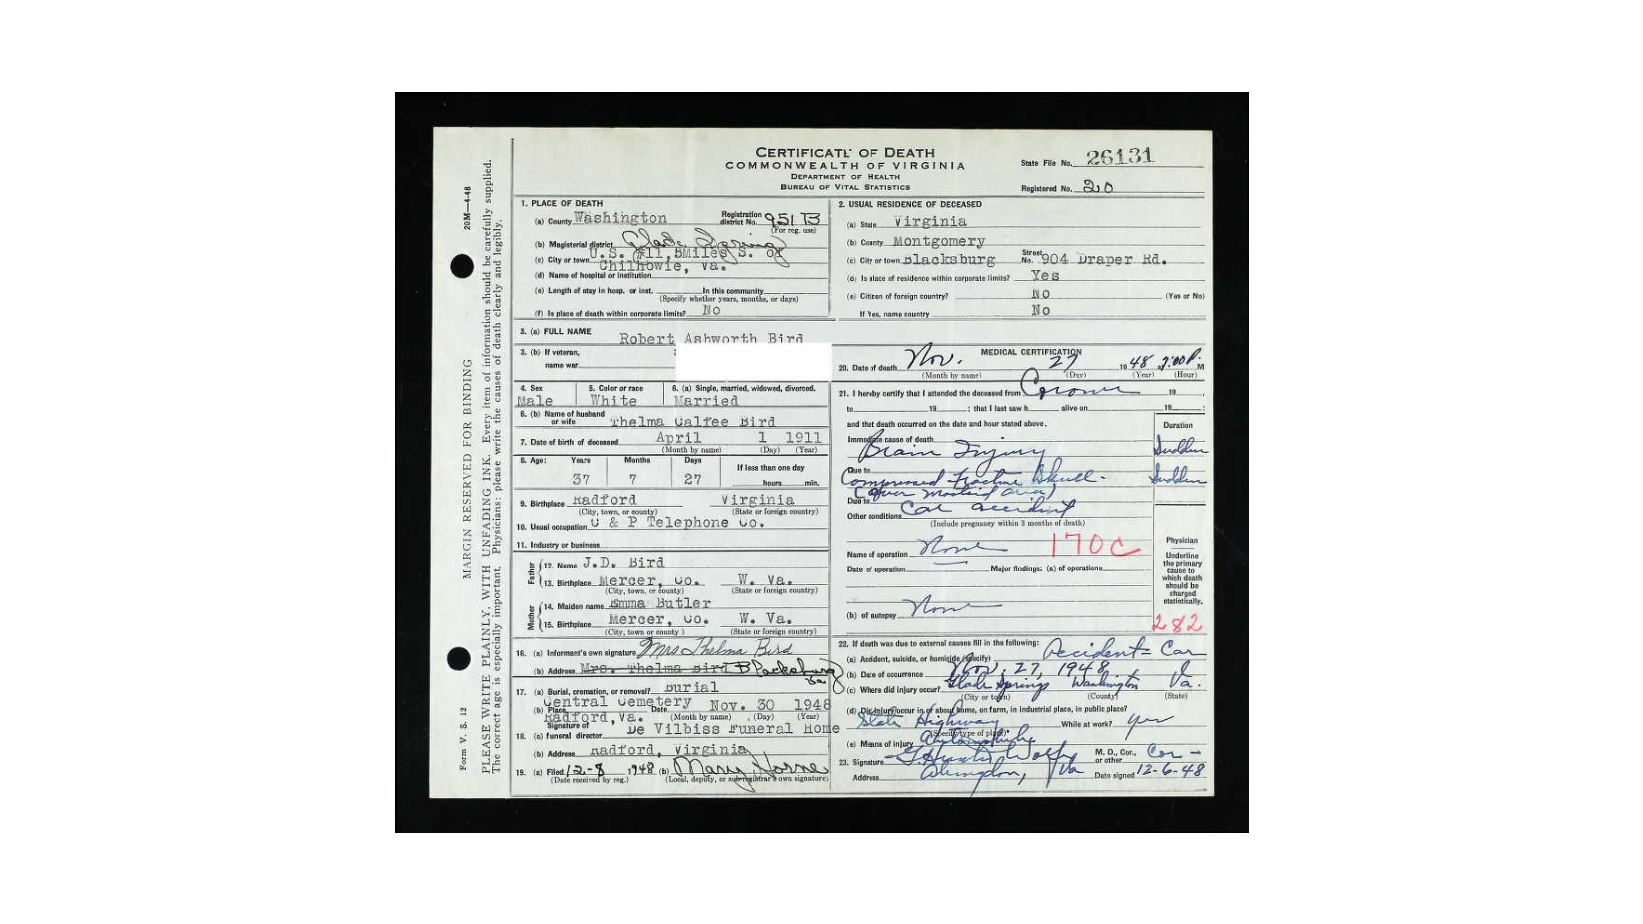 CERTIFICATE OF DEATH
COMMONWEALTH OF VIRGINIA
DEPARTMENT OF HEALTH
BUREAU OF VITAL STATISTICS
State File No. 26131
Registered No. 20
20M—4-48
MARGIN RESERVED FOR BINDING
Form V. S. 12
PLEASE WRITE PLAINLY, WITH UNFADING INK. Every item of information should be carefully supplied.
The correct age is especially important. Physicians: please write the causes of death clearly and legibly.
1. PLACE OF DEATH
(a) County Washington Registration district No. 951 B
(For reg. use)
(b) Magisterial district Glade Spring
(c) City or town U.S. #11, 5Miles S. of
Chilhowie, Va.
(d) Name of hospital or institution
(e) Length of stay in hosp. or inst. In this community
(Specify whether years, months, or days)
(f) Is place of death within corporate limits? No
2. USUAL RESIDENCE OF DECEASED
(a) State Virginia
(b) County Montgomery
(c) City or town Blacksburg Street No. 904 Draper Rd.
(d) Is place of residence within corporate limits? Yes
(e) Citizen of foreign country? No (Yes or No)
If Yes, name country No
3. (a) FULL NAME
Robert Ashworth Bird
3. (b) If veteran,
name war
4. Sex 5. Color or race 6. (a) Single, married, widowed, divorced.
Male White Married
6. (b) Name of husband or wife Thelma Calfee Bird
7. Date of birth of deceased April 1 1911
(Month by name) (Day) (Year)
8. Age: Years Months Days If less than one day
37 7 27 hours min.
9. Birthplace Radford Virginia
(City, town, or county) (State or foreign country)
10. Usual occupation C & P Telephone Co.
11. Industry or business
Father
12. Name J.D. Bird
13. Birthplace Mercer, Co. W. Va.
(City, town, or county) (State or foreign country)
Mother
14. Maiden name Emma Butler
15. Birthplace Mercer, Co. W. Va.
(City, town or county) (State or foreign country)
16. (a) Informant's own signature Mrs Thelma Bird
(b) Address Mrs. Thelma Bird Blacksburg
Va
17. (a) Burial, cremation, or removal? Burial
(b) Place Central Cemetery Date Nov. 30 1948
Radford, Va. (Month by name) (Day) (Year)
18. (a) Signature of funeral director De Vilbiss Funeral Home
(b) Address Radford, Virginia
19. (a) Filed 12-8 1948 (b) Mary Horne
(Date received by reg.) (Local, deputy, or sub-registrar's own signature)
MEDICAL CERTIFICATION
20. Date of death Nov. 27 1948 7:00 P. M
(Month by name) (Day) (Year) (Hour)
21. I hereby certify that I attended the deceased from Coroner 19
to 19 ; that I last saw h alive on 19 ;
and that death occurred on the date and hour stated above.
Duration
Immediate cause of death
Brain Injury Sudden
Due to
Compressed fracture Skull- Sudden
(over mastoid area)
Due to
Car accident
Other conditions
(Include pregnancy within 3 months of death)
Name of operation None 170c
Date of operation Major findings: (a) of operations
(b) of autopsy None
Physician
Underline the primary cause to which death should be charged statistically.
282
22. If death was due to external causes fill in the following:
(a) Accident, suicide, or homicide (specify) Accident = Car
(b) Date of occurrence Nov. 27, 1948
(c) Where did injury occur? Glade Springs Washington Va.
(City or town) (County) (State)
(d) Did injury occur in or about home, on farm, in industrial place, in public place?
State Highway While at work? Yes
(Specify type of place)
(e) Means of injury Automobile
23. Signature Wolfe M. D., Cor., or other Cor -
Address Abingdon, Va Date signed 12-6-48